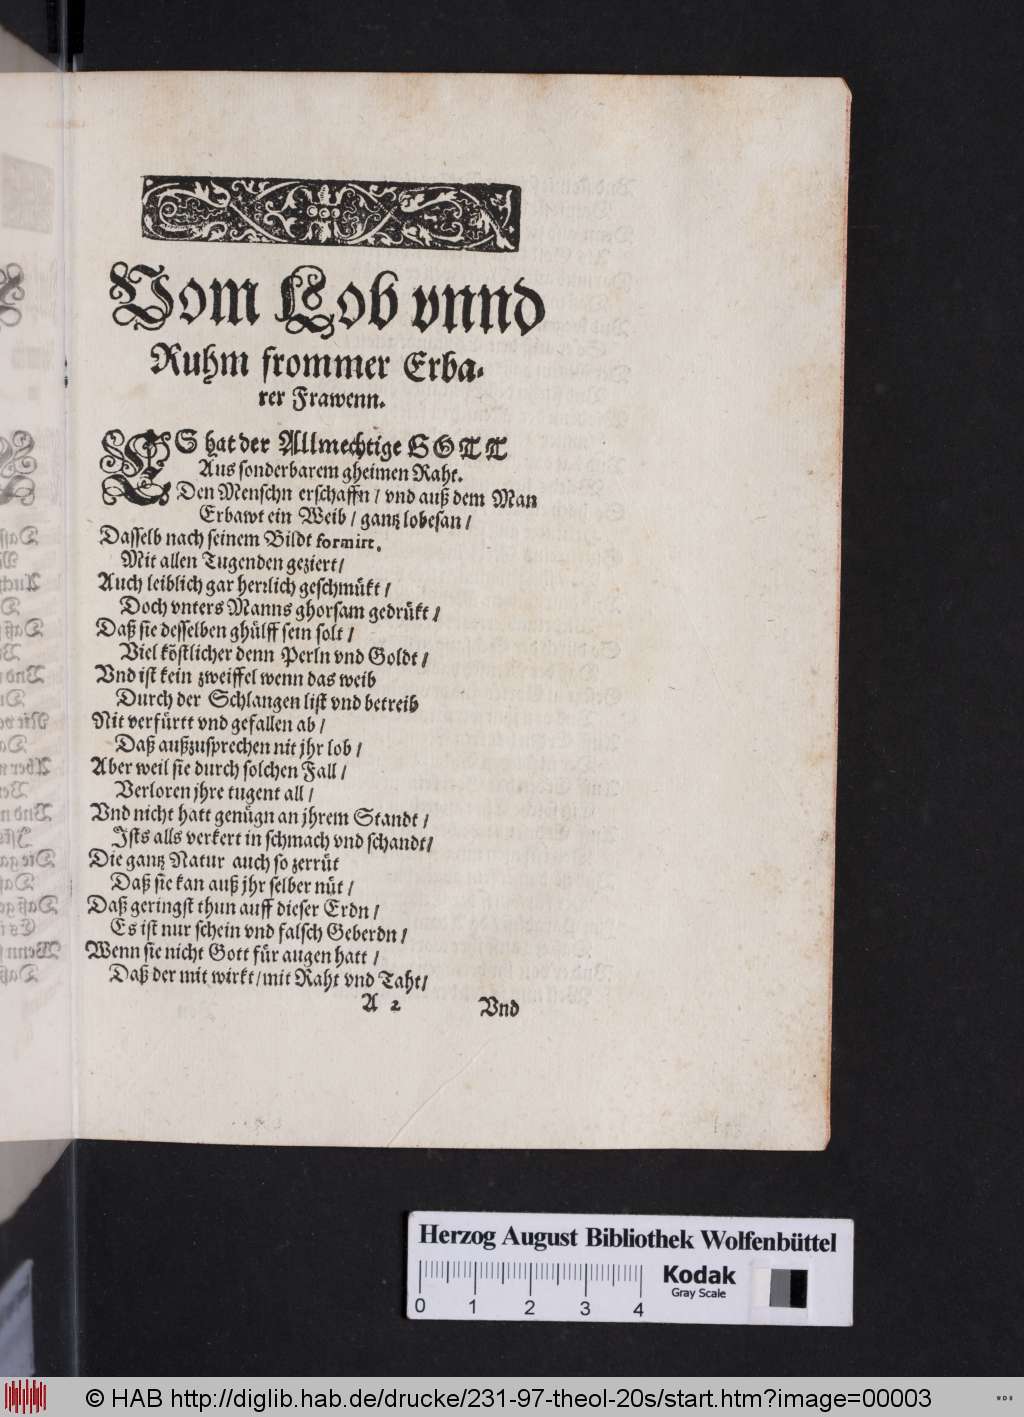 Vom Lob vnnd
Ruhm frommer Erba-
rer Frawenn.
ES hat der Allmechtige GOTT
Aus sonderbarem gheimen Raht.
Den Menschn erschaffn / vnd auß dem Man
Erbawt ein Weib / gantz lobesan /
Dasselb nach seinem Bildt formirt.
Mit allen Tugenden geziert /
Auch leiblich gar herrlich geschmükt /
Doch vnters Manns ghorsam gedrükt /
Daß sie desselben ghülff sein solt /
Viel köstlicher denn Perln vnd Goldt /
Vnd ist kein zweiffel wenn das weib
Durch der Schlangen list vnd betreib
Nit verfürtt vnd gefallen ab /
Daß außzusprechen nit jhr lob /
Aber weil sie durch solchen Fall /
Verloren jhre tugent all /
Vnd nicht hatt genügn an jhrem Standt /
Ists alls verkert in schmach vnd schandt /
Die gantz Natur auch so zerrüt
Daß sie kan auß jhr selber nüt /
Daß geringst thun auff dieser Erdn /
Es ist nur schein vnd falsch Geberdn /
Wenn sie nicht Gott für augen hatt /
Daß der mit wirkt / mit Raht vnd Taht /
A 2 Vnd
Herzog August Bibliothek Wolfenbüttel
Kodak
Gray Scale
0 1 2 3 4
© HAB http://diglib.hab.de/drucke/231-97-theol-20s/start.htm?image=00003